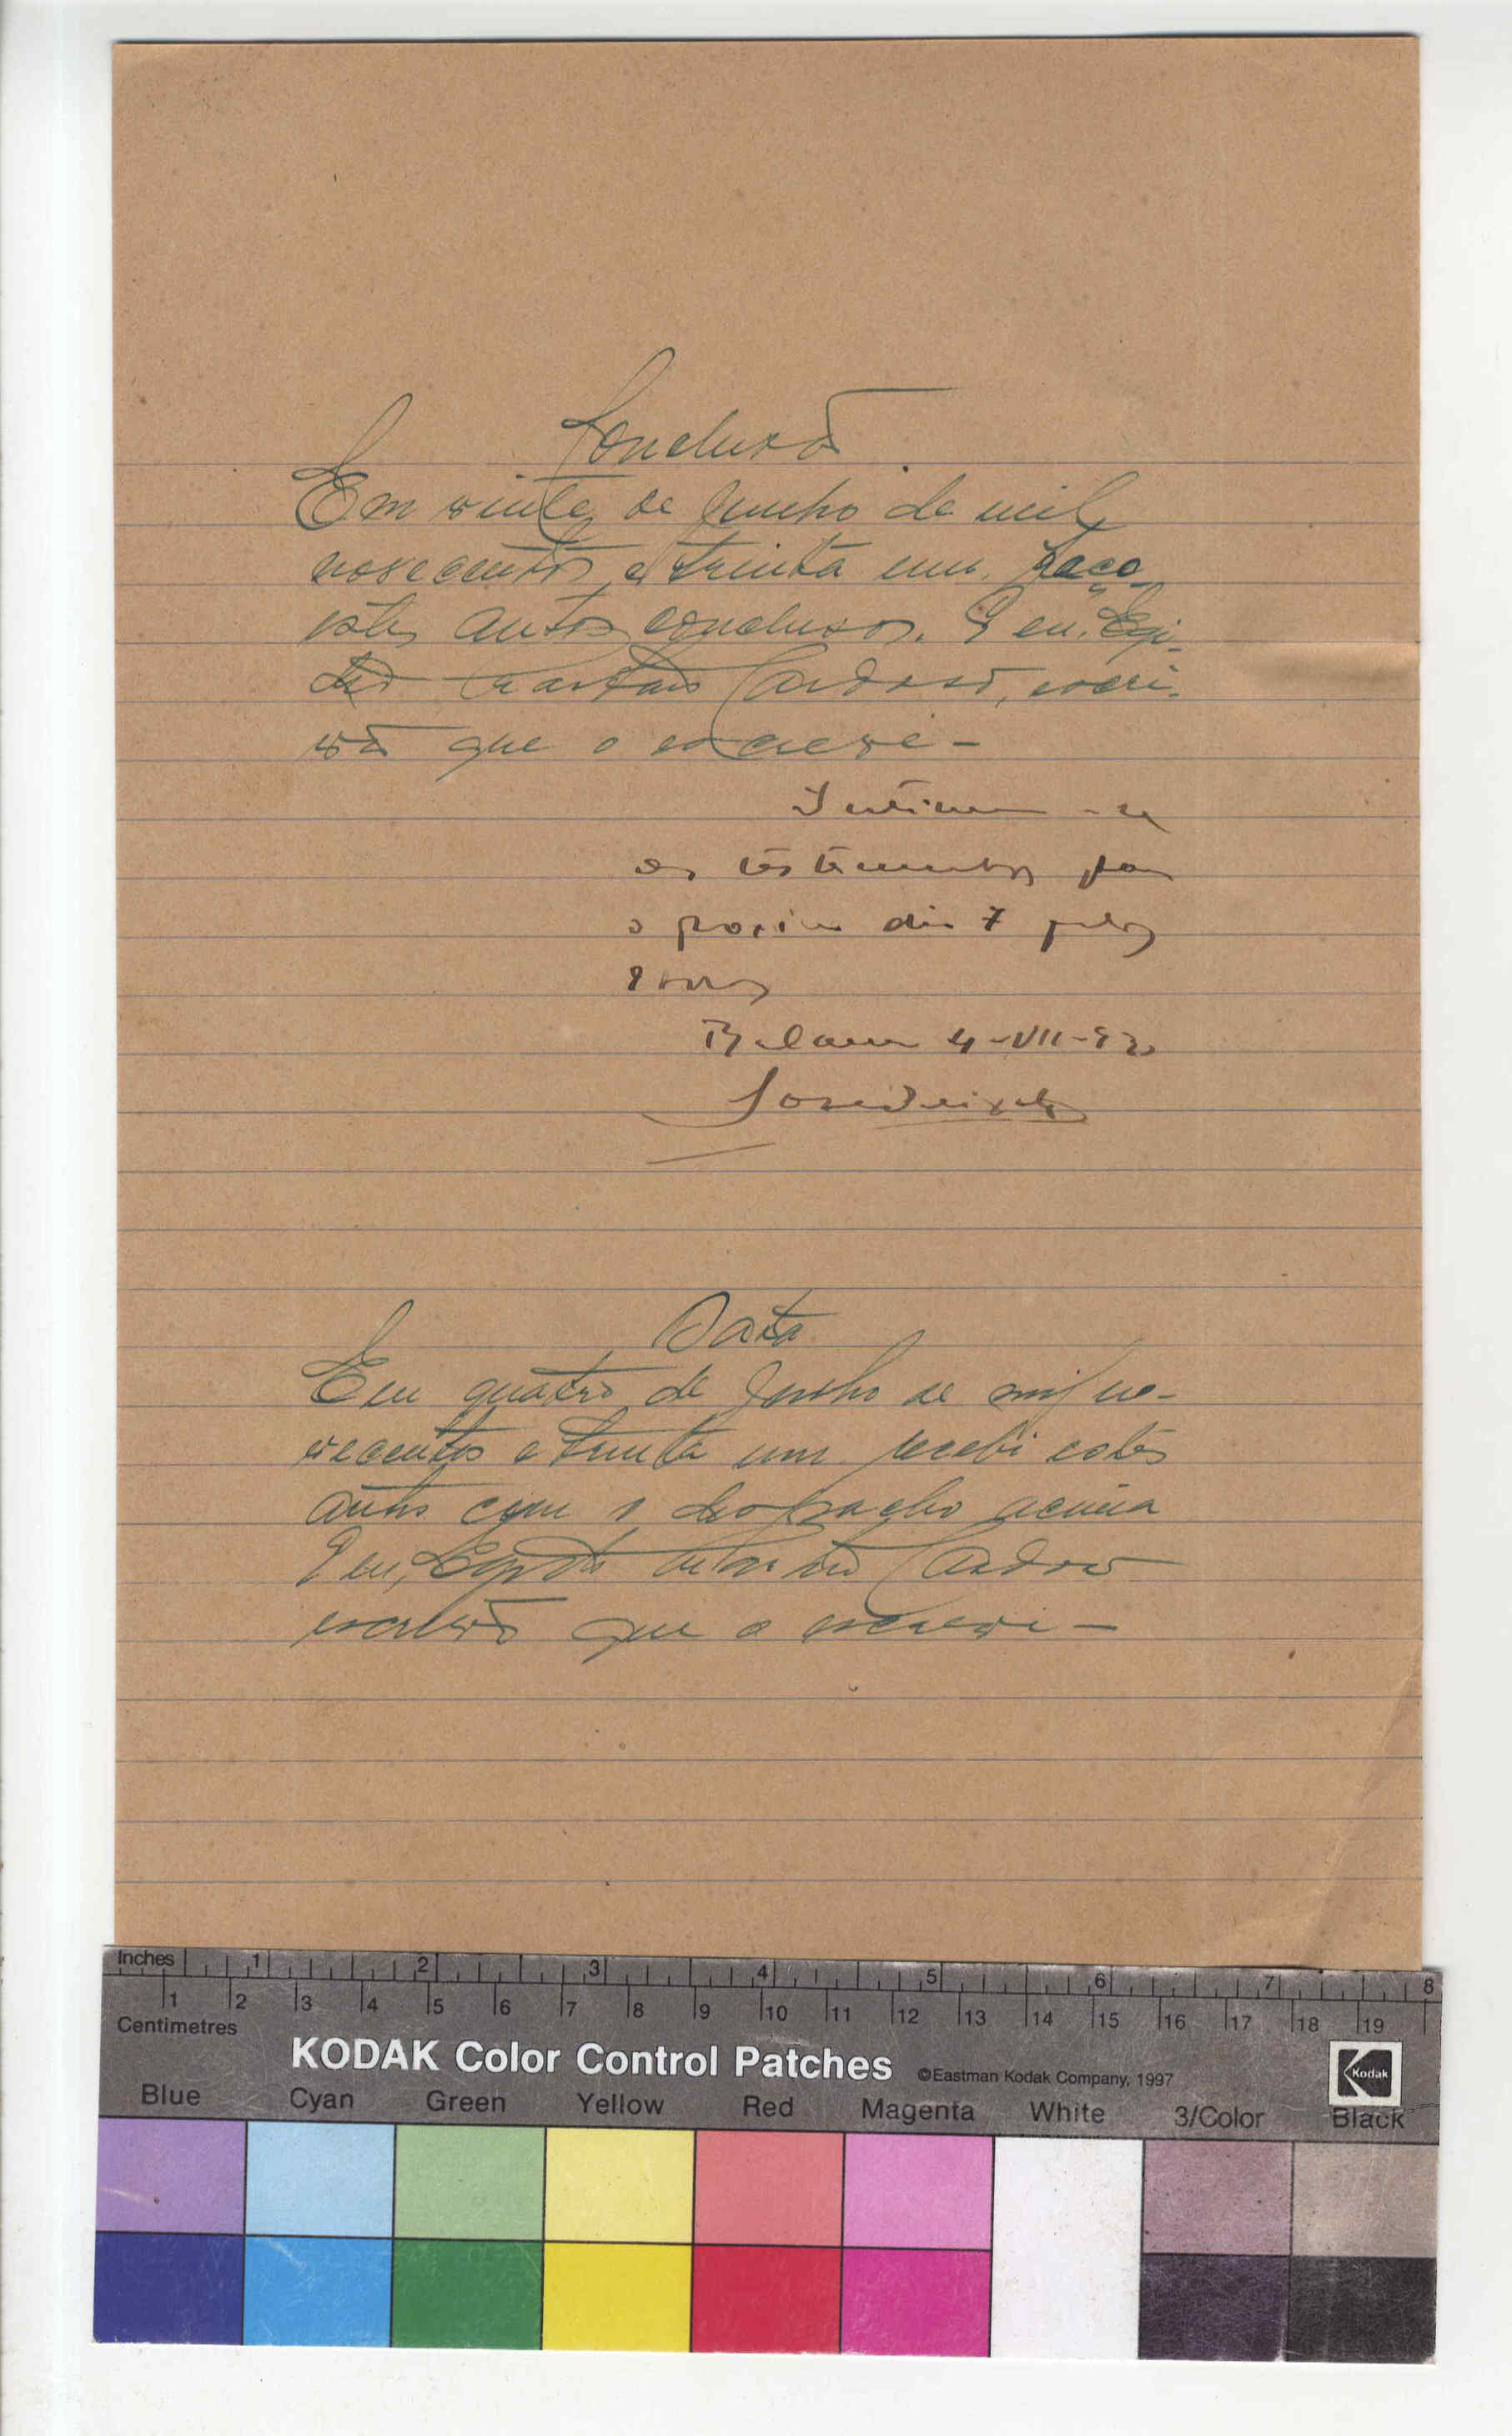 Conclusão
Em vinte de Junho de mil
novecentos e trinta um. Faço
estes autos conclusos. E eu, Egi-
Cardoso, escri-
vão que o escrevi -
Intimem-se
as testemunhas para
o proximo dia 7 pelas
8 horas
4-VII-93
Data
Em quatro de Julho de mil no-
vecentos e trinta um recebi estes
autos com o despacho acima
E eu, Egydio Cardoso
escrivão que o escrevi -
Inches 1 2 3 4 5 6 7 8
1 2 3 4 5 6 7 8 9 10 11 12 13 14 15 16 17 18 19
Centimetres
KODAK Color Control Patches ©Eastman Kodak Company, 1997 Kodak
Blue Cyan Green Yellow Red Magenta White 3/Color Black